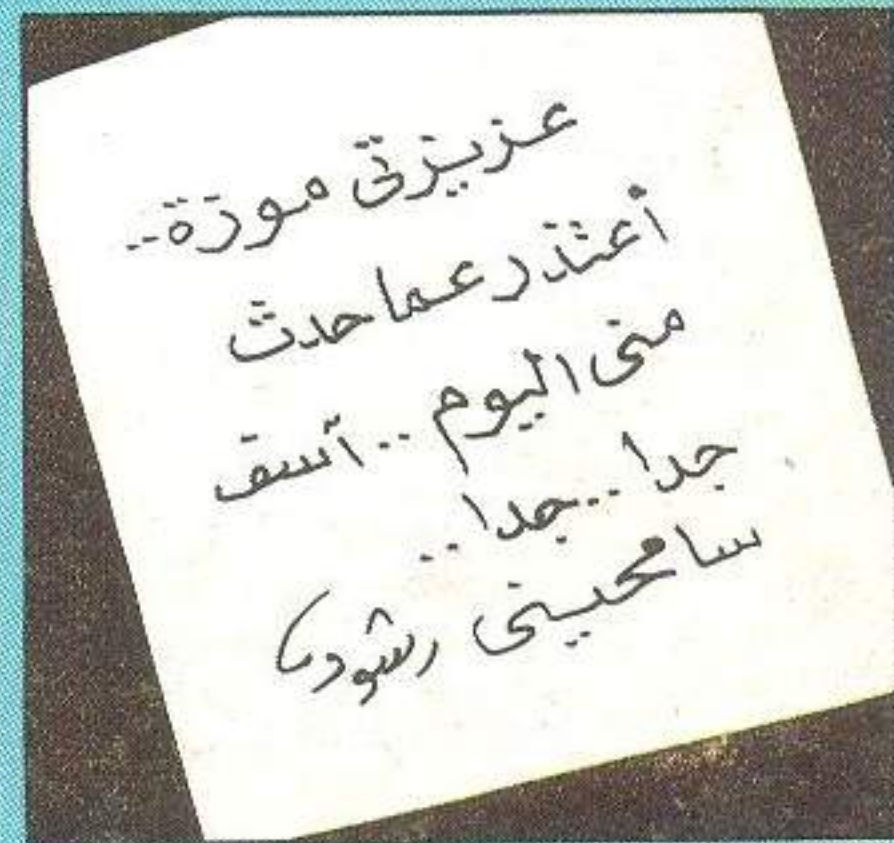 عزيزتى موزة..
أعتذر عما حدث
منى اليوم .. آسف
جدا .. جدا ..
سامحينى رشود